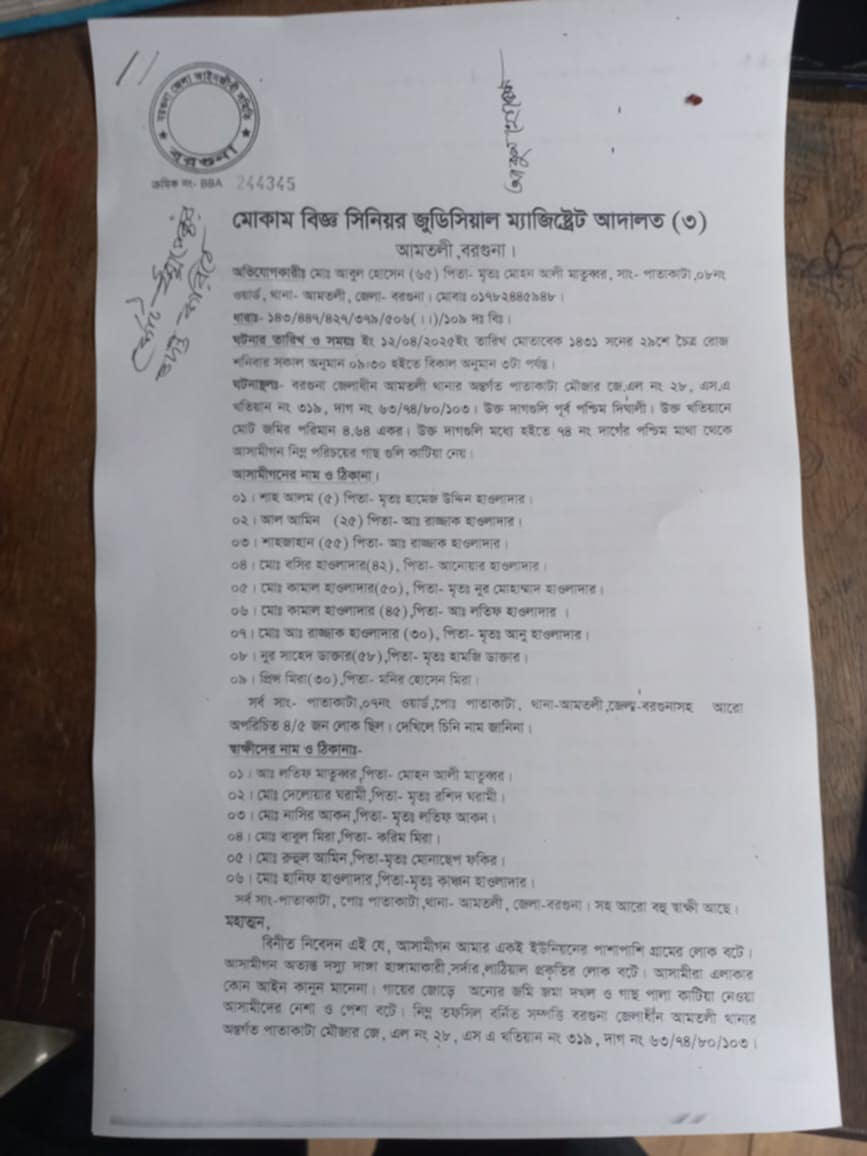 বরগুনা জেলা আইনজীবী সমিতি
বরগুনা
ক্রমিক নং- BBA 244345
মোকাম বিজ্ঞ সিনিয়র জুডিসিয়াল ম্যাজিষ্ট্রেট আদালত (৩)
আমতলী,বরগুনা।
অভিযোগকারীঃ মোঃ আবুল হোসেন (৬৫) পিতা- মৃতঃ মোহন আলী মাতুব্বর, সাং- পাতাকাটা,০৮নং
ওয়ার্ড, থানা- আমতলী, জেলা- বরগুনা। মোবাঃ ০১৭৮২৪৪৫৯৪৮।
ধারাঃ- ১৪৩/৪৪৭/৪২৭/৩৭৯/৫০৬(।।)/১০৯ দঃ বিঃ।
ঘটনার তারিখ ও সময়ঃ ইং ১২/০৪/২০২৫ইং তারিখ মোতাবেক ১৪৩১ সনের ২৯শে চৈত্র রোজ
শনিবার সকাল অনুমান ০৯:৩০ হইতে বিকাল অনুমান ৩টা পর্যন্ত।
ঘটনাস্থলঃ- বরগুনা জেলাধীন আমতলী থানার অন্তর্গত পাতাকাটা মৌজার জে,এল নং ২৮, এস,এ
খতিয়ান নং ৩১৯, দাগ নং ৬৩/৭৪/৮০/১০৩। উক্ত দাগগুলি পূর্ব পশ্চিম দিঘালী। উক্ত খতিয়ানে
মোট জমির পরিমান ৪.৬৪ একর। উক্ত দাগগুলি মধ্যে হইতে ৭৪ নং দাগের পশ্চিম মাথা থেকে
আসামীগন নিম্ন পরিচয়ের গাছ গুলি কাটিয়া নেয়।
আসামীগনের নাম ও ঠিকানা।
০১। শাহ আলম (৫) পিতা- মৃতঃ হামেজ উদ্দিন হাওলাদার।
০২। আল আমিন (২৫) পিতা- আঃ রাজ্জাক হাওলাদার।
০৩। শাহজাহান (৫৫) পিতা- আঃ রাজ্জাক হাওলাদার।
০৪। মোঃ বসির হাওলাদার(৪২), পিতা- আনোয়ার হাওলাদার।
০৫। মোঃ কামাল হাওলাদার(৫০), পিতা- মৃতঃ নুর মোহাম্মদ হাওলাদার।
০৬। মোঃ কামাল হাওলাদার (৪৫),পিতা- আঃ লতিফ হাওলাদার ।
০৭। মোঃ আঃ রাজ্জাক হাওলাদার (৩০), পিতা- মৃতঃ আনু হাওলাদার।
০৮। নুর সাহেদ ডাক্তার(৫৮),পিতা- মৃতঃ হামজি ডাক্তার।
০৯। প্রিন্স মিরা(৩০),পিতা- মনির হোসেন মিরা।
সর্ব সাং- পাতাকাটা,০৭নং ওয়ার্ড,পোঃ পাতাকাটা, থানা-আমতলী,জেলা-বরগুনাসহ আরো
অপরিচিত ৪/৫ জন লোক ছিল। দেখিলে চিনি নাম জানিনা।
স্বাক্ষীদের নাম ও ঠিকানাঃ-
০১। আঃ লতিফ মাতুব্বর,পিতা- মোহন আলী মাতুব্বর।
০২। মোঃ দেলোয়ার ঘরামী,পিতা- মৃতঃ রশিদ ঘরামী।
০৩। মোঃ নাসির আকন,পিতা- মৃতঃ লতিফ আকন।
০৪। মোঃ বাবুল মিরা,পিতা- করিম মিরা।
০৫। মোঃ রুহুল আমিন,পিতা-মৃতঃ মোনাছেপ ফকির।
০৬। মোঃ হানিফ হাওলাদার,পিতা-মৃতঃ কাঞ্চন হাওলাদার।
সর্ব সাং-পাতাকাটা, পোঃ পাতাকাটা,থানা- আমতলী, জেলা-বরগুনা। সহ আরো বহু স্বাক্ষী আছে।
মহাত্মন,
বিনীত নিবেদন এই যে, আসামীগন আমার একই ইউনিয়নের পাশাপাশি গ্রামের লোক বটে।
আসামীগন অত্যন্ত দস্যু দাঙ্গা হাঙ্গামাকারী,সর্দার,লাঠিয়াল প্রকৃতির লোক বটে। আসামীরা এলাকার
কোন আইন কানুন মানেনা। গায়ের জোড়ে অন্যের জমি জমা দখল ও গাছ পালা কাটিয়া নেওয়া
আসামীদের নেশা ও পেশা বটে। নিম্ন তফসিল বর্নিত সম্পত্তি বরগুনা জেলাধীন আমতলী থানার
অন্তর্গত পাতাকাটা মৌজার জে, এল নং ২৮, এস এ খতিয়ান নং ৩১৯, দাগ নং ৬৩/৭৪/৮০/১০৩।